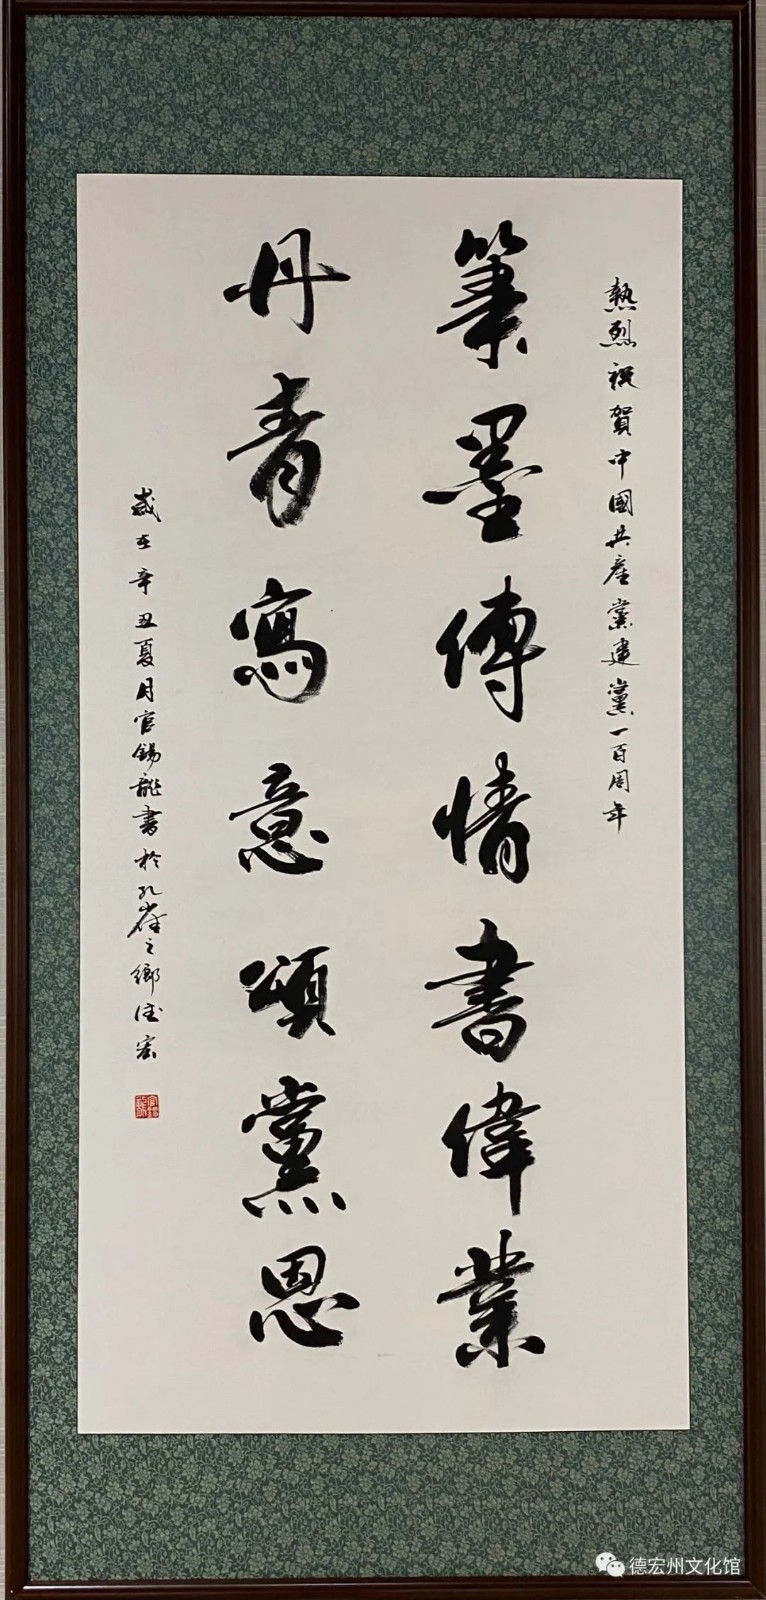 熱烈祝賀中國共產黨建黨一百周年
筆墨傳情書偉業
丹青寫意頌黨恩
歲在辛丑夏月官錫龍書於孔雀之鄉德宏
德宏州文化馆